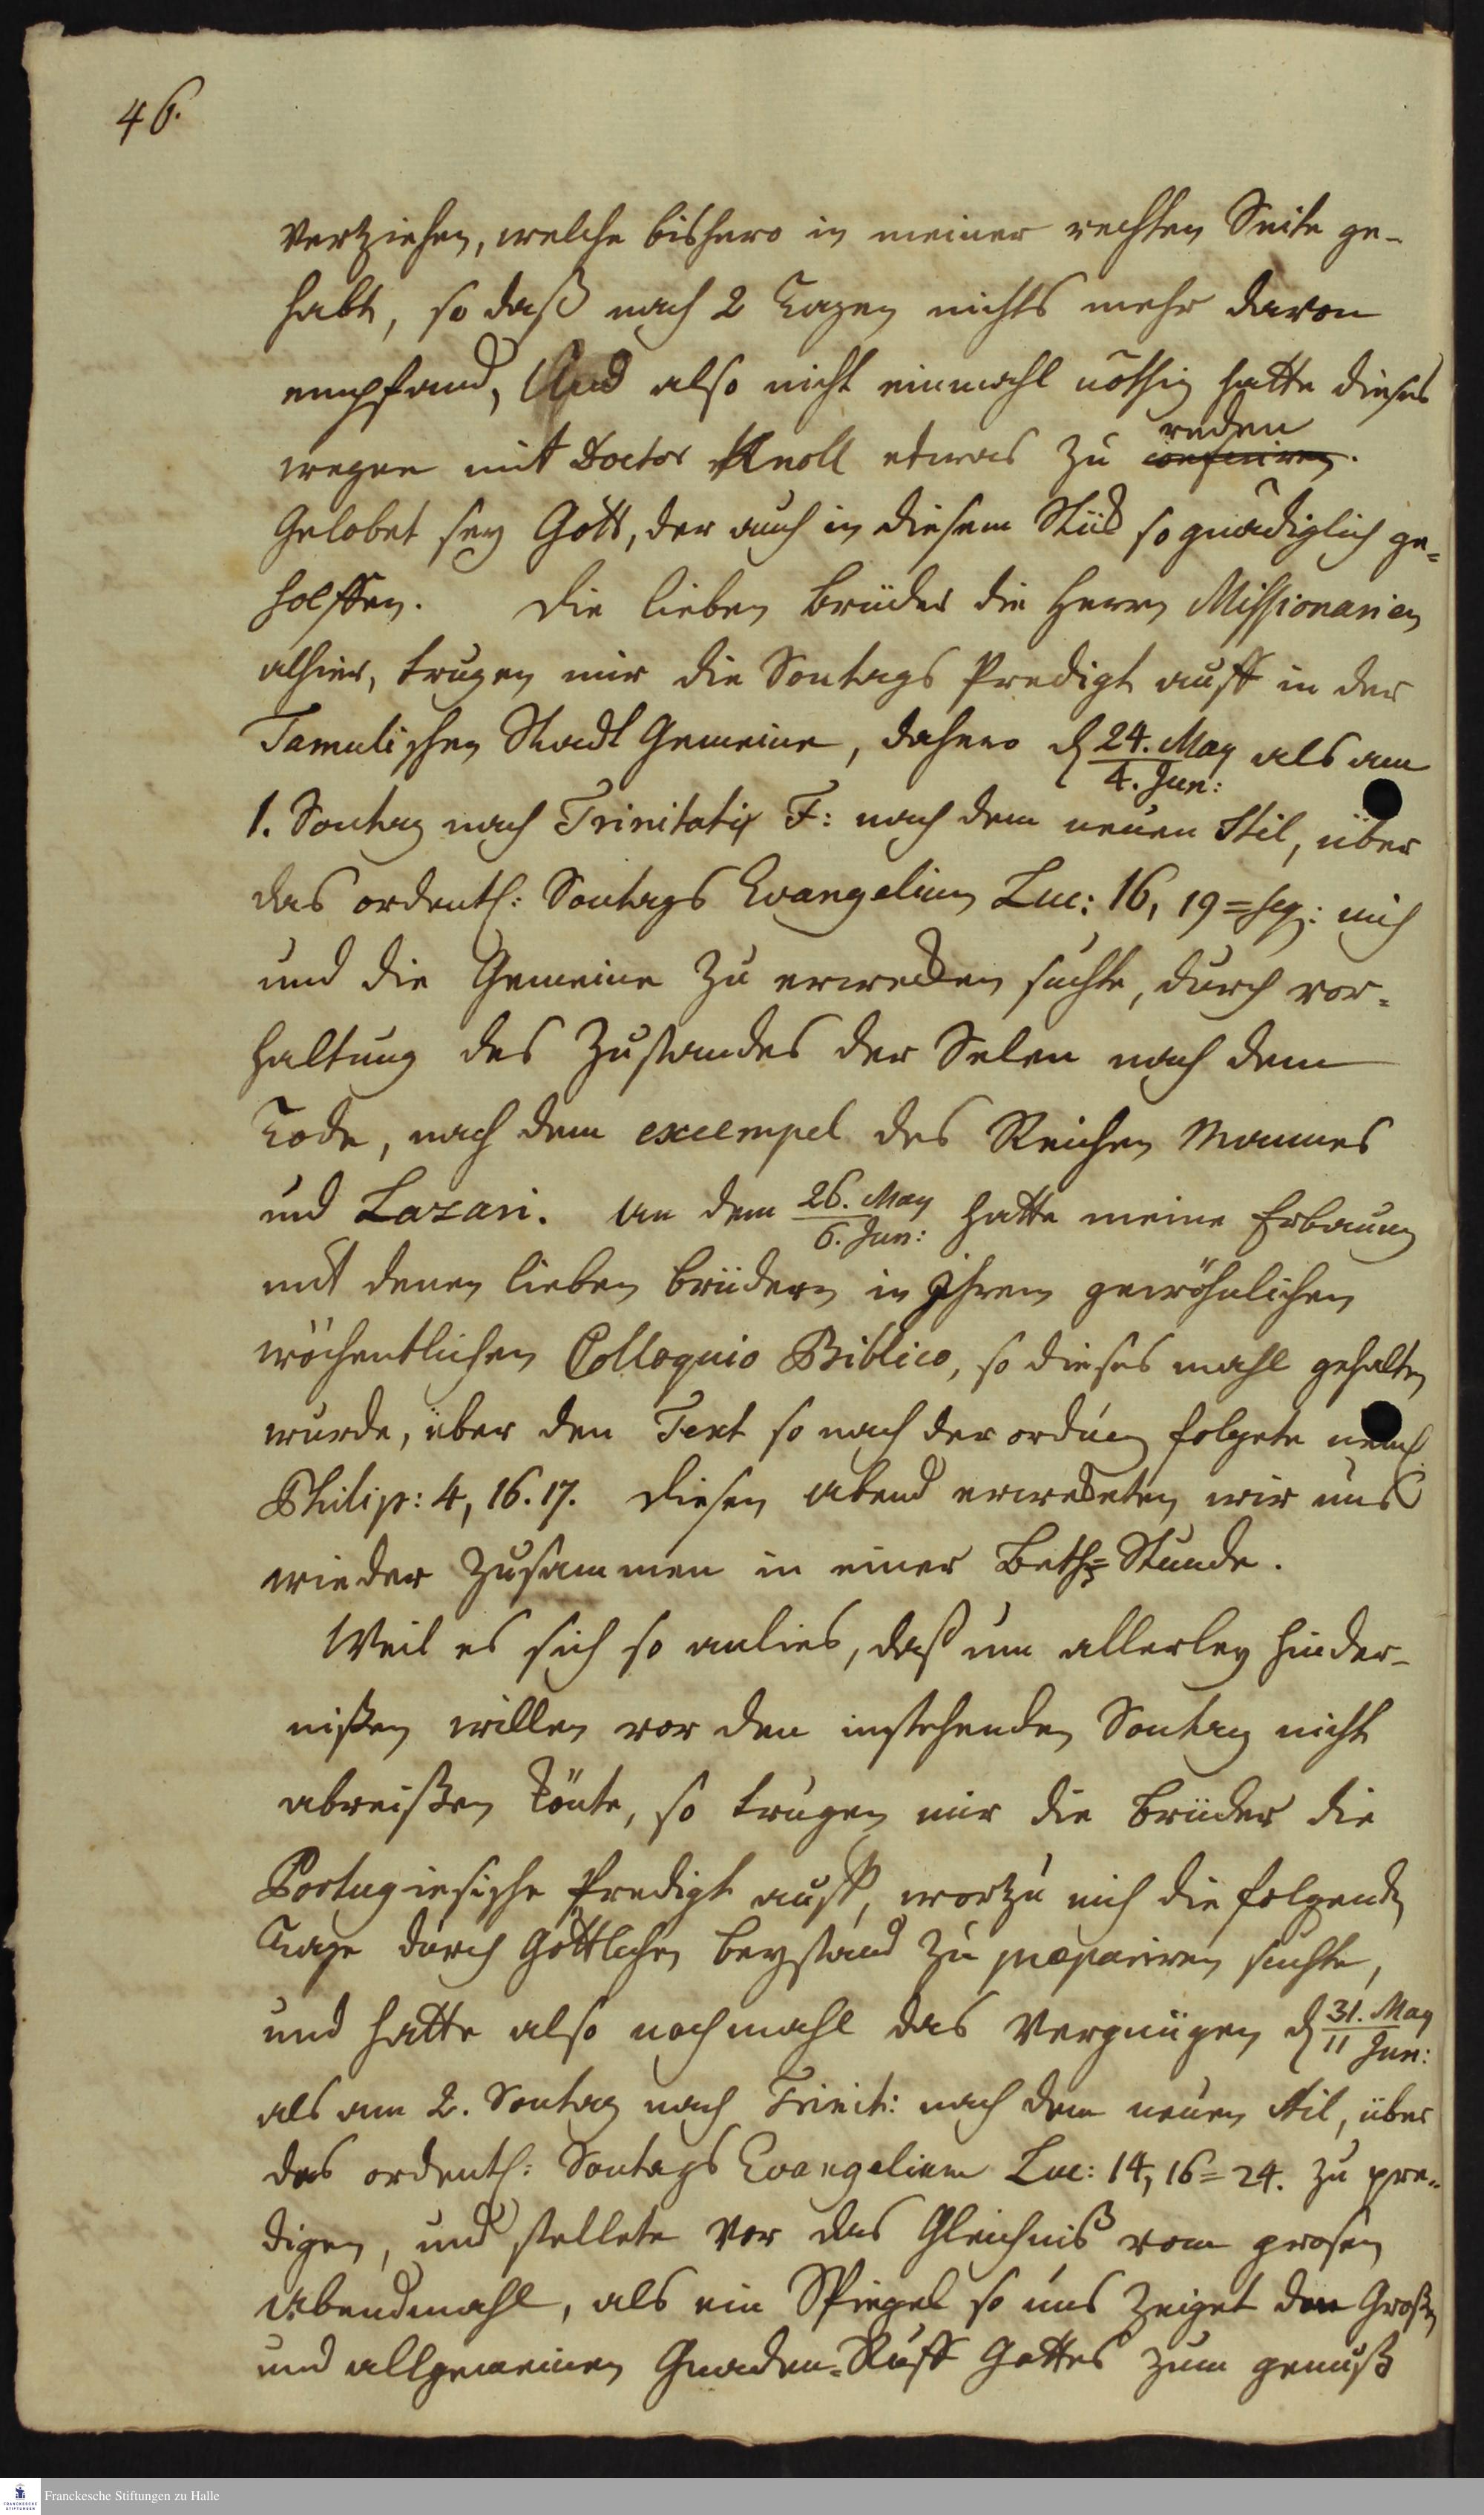 46.
verziehen, welche bishero in meiner rechten Seite ge-
habt, so daß nach 2 Tagen nichts mehr davon
empfand, Und also nicht einmahl nöthig hatte dieses
reden
wegen mit Doctor Knoll etwas zu conferiren.
Gelobet sey Gott, der auch in diesem Stück so gnädiglich ge=
holffen. Die lieben Brüder die Herrn Missionarien
alhier, trugen mir die Sontags Predigt auff in der
Tamulischen Stadt Gemeine, dahero d 24. May als am
4. Jun:
1. Sontag nach Trinitatis F: nach dem neuen Stil, über
das ordentl: Sontags Evangelium Luc: 16, 19=seq: mich
und die Gemeine zu erwecken suchte, durch vor=
haltung des Zustandes der Selen nach dem
Tode, nach dem exempel des Reichen Mannes
und Lazari. An dem 26. May hatte meine Erbauung
6. Jun:
mit denen lieben Brüdern in Ihrem gewöhnlichen
wöchentlichen Colloquio Biblico, so dieses mahl gehalten
wurde, über den Text so nach der ordnung folgete neml
Philip: 4, 16. 17. Diesen Abend erweckten wir uns
wieder zusammen in einer Beth=Stunde.
Weil es sich so anlies, daß um allerley hinder-
nißen willen vor den instehenden Sontag nicht
abreißen könte, so trugen mir die Brüder die
Portugiesische Predigt auff, worzu mich die folgende
Tage durch Göttlichen beystand zu præpariren suchte,
und hatte also nochmahl das Vergnügen d 31. May
11 Jun:
als am 2. Sontag nach Trinit: nach dem neuen Stil, über
das ordentl: Sontags Evangelium Luc: 14, 16=24. zu pre=
digen, und stellete vor das Gleichniß vom grosen
Abendmahl, als ein Spiegel so uns zeiget den Großen
und allgemeinen Gnaden=Ruff Gottes zum genuß
Franckesche Stiftungen zu Halle